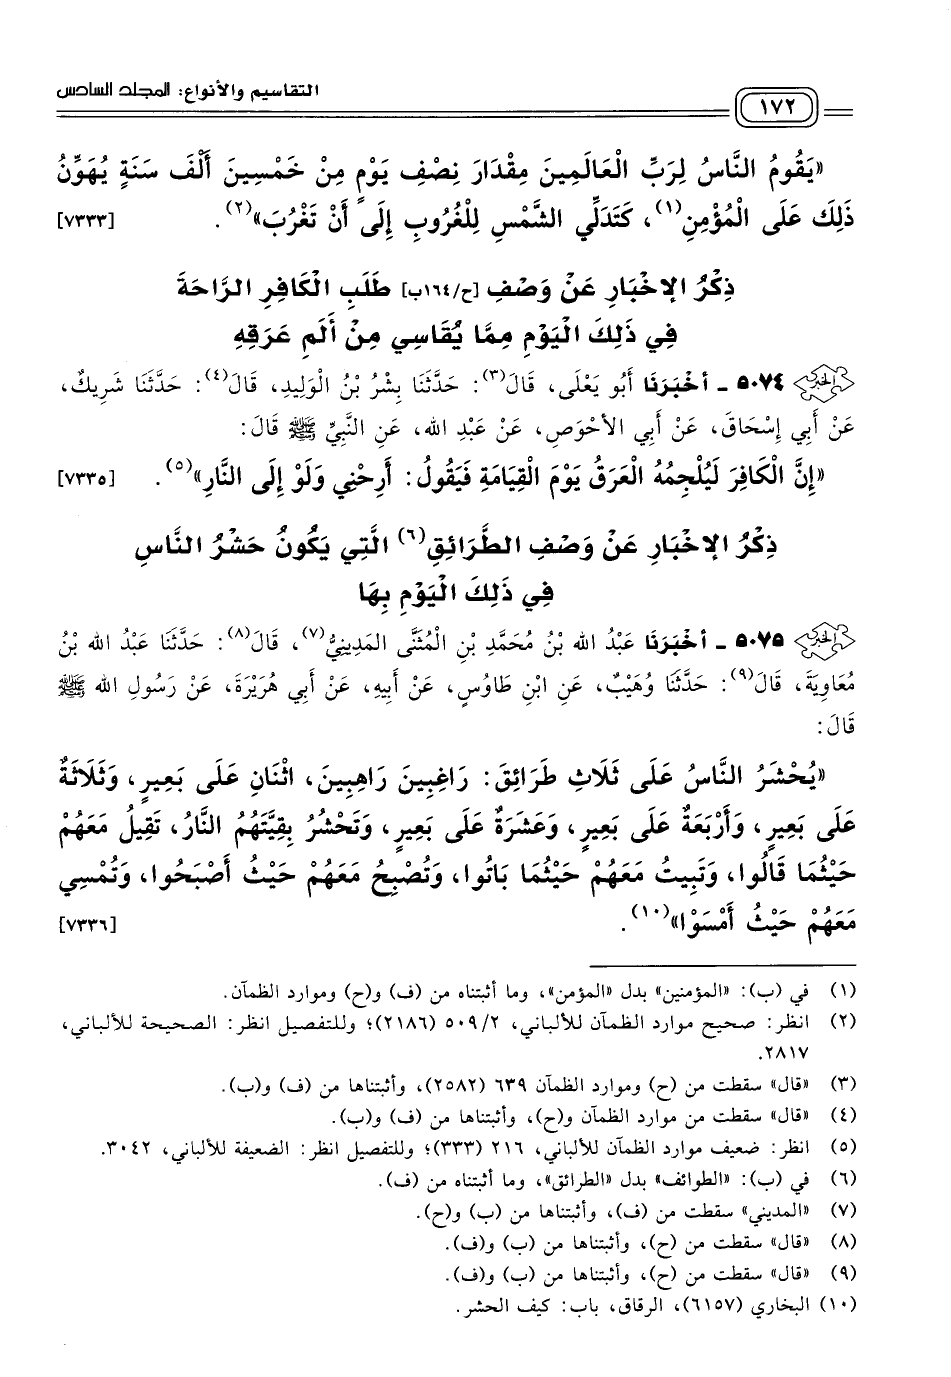 التقاسيم والأنواع: المجلد السادس
١٧٢
«يَقُومُ النَّاسُ لِرَبِّ الْعَالَمِينَ مِقْدَارَ نِصْفِ يَوْمٍ مِنْ خَمْسِينَ أَلْفَ سَنَةٍ يُهَوَّنُ
ذَلِكَ عَلَى الْمُؤْمِنِ(١)، كَتَدَلِّي الشَّمْسِ لِلْغُرُوبِ إِلَى أَنْ تَغْرُبَ»(٢). [٧٣٣٣]
ذِكْرُ الإِخْبَارِ عَنْ وَصْفِ [ح/١٦٤ب] طَلَبِ الْكَافِرِ الرَّاحَةَ
فِي ذَلِكَ الْيَوْمِ مِمَّا يُقَاسِي مِنْ أَلَمِ عَرَقِهِ
الخبر ٥٠٧٤ ـ أَخْبَرَنَا أَبُو يَعْلَى، قَالَ(٣): حَدَّثَنَا بِشْرُ بْنُ الْوَلِيدِ، قَالَ(٤): حَدَّثَنَا شَرِيكٌ،
عَنْ أَبِي إِسْحَاقَ، عَنْ أَبِي الأَحْوَصِ، عَنْ عَبْدِ الله، عَنِ النَّبِيِّ ﷺ قَالَ:
«إِنَّ الْكَافِرَ لَيُلْجِمُهُ الْعَرَقُ يَوْمَ الْقِيَامَةِ فَيَقُولُ: أَرِحْنِي وَلَوْ إِلَى النَّارِ»(٥). [٧٣٣٥]
ذِكْرُ الإِخْبَارِ عَنْ وَصْفِ الطَّرَائِقِ(٦) الَّتِي يَكُونُ حَشْرُ النَّاسِ
فِي ذَلِكَ الْيَوْمِ بِهَا
الخبر ٥٠٧٥ ـ أَخْبَرَنَا عَبْدُ الله بْنُ مُحَمَّدِ بْنِ الْمُثَنَّى المَدِينِيُّ(٧)، قَالَ(٨): حَدَّثَنَا عَبْدُ الله بْنُ
مُعَاوِيَةَ، قَالَ(٩): حَدَّثَنَا وُهَيْبٌ، عَنِ ابْنِ طَاوُسٍ، عَنْ أَبِيهِ، عَنْ أَبِي هُرَيْرَةَ، عَنْ رَسُولِ الله ﷺ
قَالَ:
«يُحْشَرُ النَّاسُ عَلَى ثَلَاثِ طَرَائِقَ: رَاغِبِينَ رَاهِبِينَ، اثْنَانِ عَلَى بَعِيرٍ، وَثَلَاثَةٌ
عَلَى بَعِيرٍ، وَأَرْبَعَةٌ عَلَى بَعِيرٍ، وَعَشَرَةٌ عَلَى بَعِيرٍ، وَتَحْشُرُ بِقِيَّتَهُمُ النَّارُ، تَقِيلُ مَعَهُمْ
حَيْثُمَا قَالُوا، وَتَبِيتُ مَعَهُمْ حَيْثُمَا بَاتُوا، وَتُصْبِحُ مَعَهُمْ حَيْثُ أَصْبَحُوا، وَتُمْسِي
مَعَهُمْ حَيْثُ أَمْسَوْا»(١٠). [٧٣٣٦]
(١) في (ب): «المؤمنين» بدل «المؤمن»، وما أثبتناه من (ف) و(ح) وموارد الظمآن.
(٢) انظر: صحيح موارد الظمآن للألباني، ٥٠٩/٢ (٢١٨٦)؛ وللتفصيل انظر: الصحيحة للألباني،
٢٨١٧.
(٣) «قال» سقطت من (ح) وموارد الظمآن ٦٣٩ (٢٥٨٢)، وأثبتناها من (ف) و(ب).
(٤) «قال» سقطت من موارد الظمآن و(ح)، وأثبتناها من (ف) و(ب).
(٥) انظر: ضعيف موارد الظمآن للألباني، ٢١٦ (٣٣٣)؛ وللتفصيل انظر: الضعيفة للألباني، ٣٠٤٢.
(٦) في (ب): «الطوائف» بدل «الطرائق»، وما أثبتناه من (ف).
(٧) «المديني» سقطت من (ف)، وأثبتناها من (ب) و(ح).
(٨) «قال» سقطت من (ح)، وأثبتناها من (ب) و(ف).
(٩) «قال» سقطت من (ح)، وأثبتناها من (ب) و(ف).
(١٠) البخاري (٦١٥٧)، الرقاق، باب: كيف الحشر.